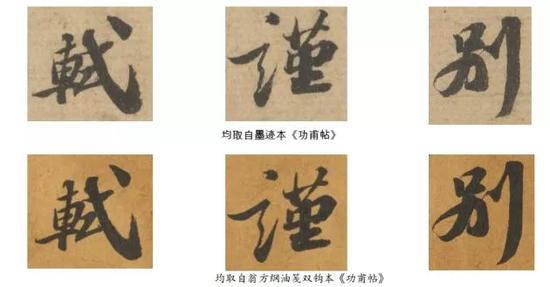 軾 謹 别
均取自墨迹本《功甫帖》
軾 謹 别
均取自翁方纲油笺双钩本《功甫帖》